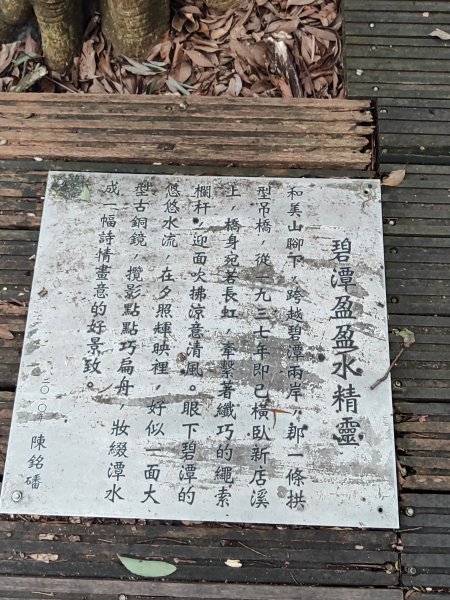 碧潭盈盈水精靈
和美山腳下，跨越碧潭兩岸，那一條拱
型吊橋，從一九三七年即已橫臥新店溪
上，橋身宛若長虹，牽繫著纖巧的繩索
欄杆，迎面吹拂涼意清風。眼下碧潭的
悠悠水流，在夕照輝映裡，好似一面大
型古銅鏡，攬影點點巧扁舟，妝綴潭水
成一幅詩情畫意的好景致。
二〇一〇 陳銘磻